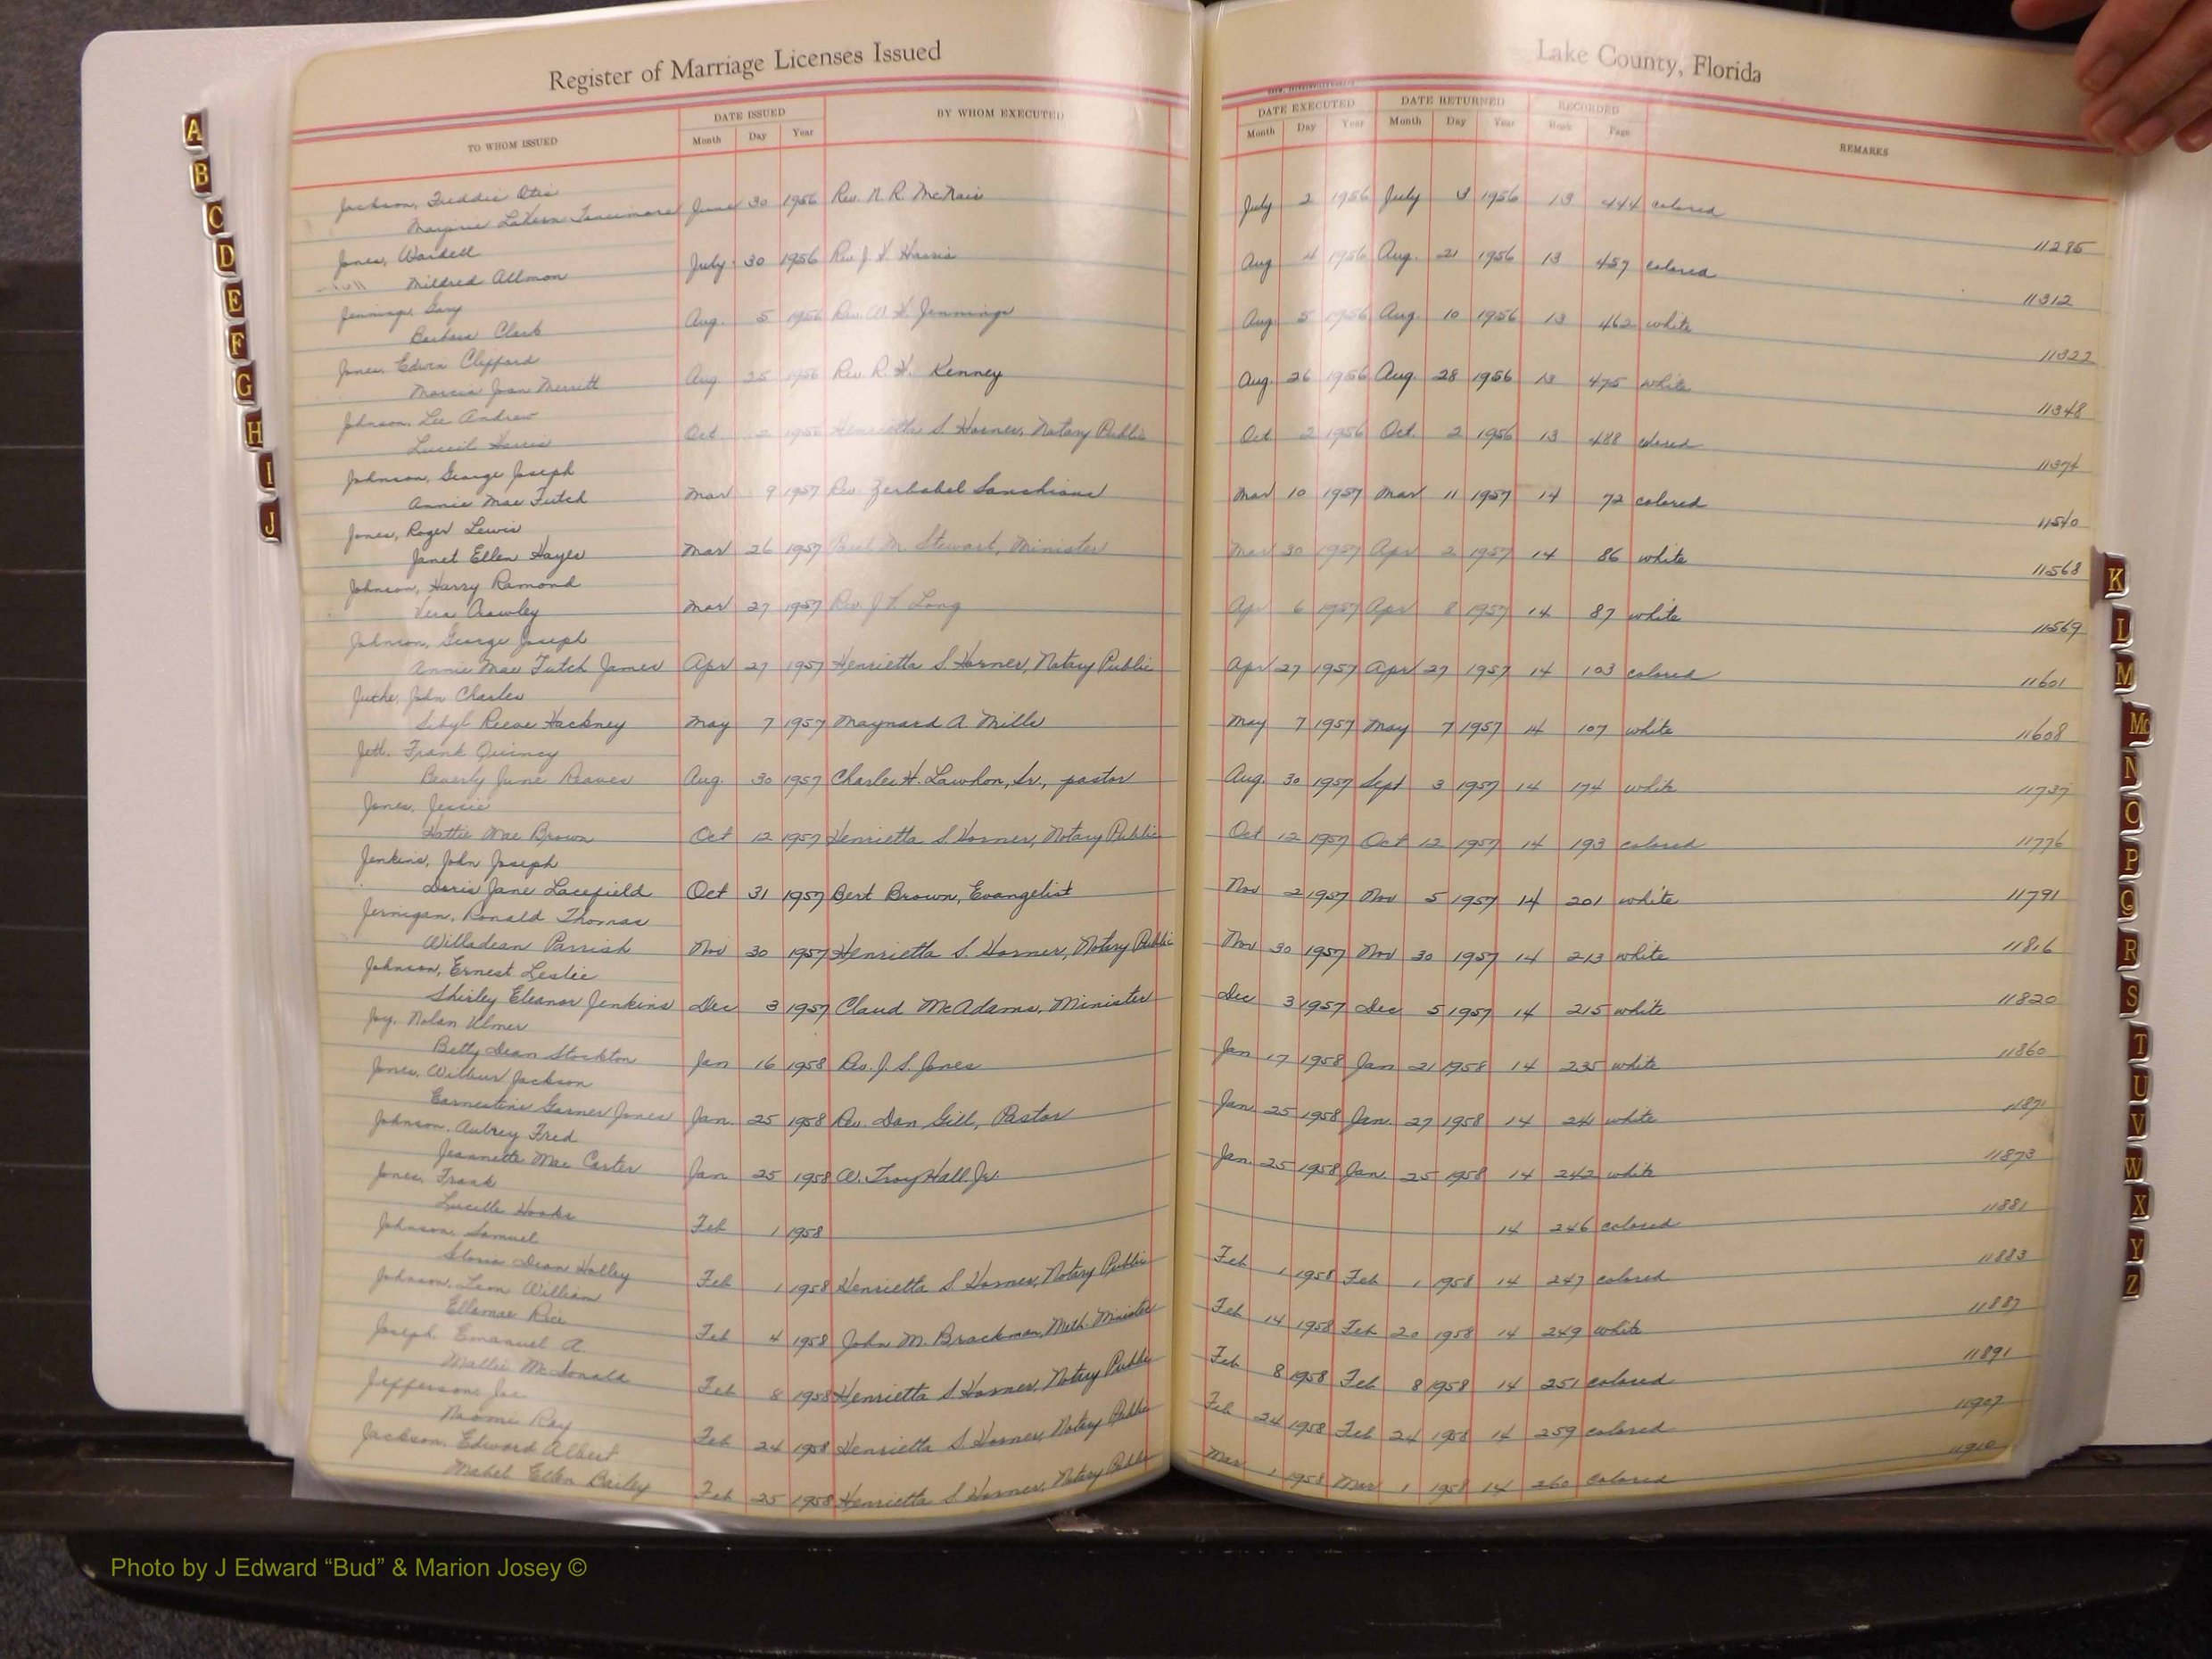 Register of Marriage Licenses Issued
Lake County, Florida
TO WHOM ISSUED
DATE ISSUED
Month Day Year
BY WHOM EXECUTED
DATE EXECUTED
Month Day Year
DATE RETURNED
Month Day Year
RECORDED
Book Page
REMARKS
Jackson, Freddie Otis
Marjorie LaVern June 30 1956 Rev. N. R. McNair July 2 1956 July 1956 13 444 colored 11285
Jones, Wardell
Mildred Allmon July 30 1956 Rev. J. H. Harris Aug 4 1956 Aug. 21 1956 13 457 colored 11312
Jennings, Gary
Barbara Clark Aug. 5 1956 Rev. W. H. Jennings Aug. 5 1956 Aug. 10 1956 13 462 white 11322
Jones, Edwin Clifford
Marcia Joan Merritt Aug 25 1956 Rev. R. H. Kenney Aug. 26 1956 Aug. 28 1956 13 475 white 11348
Johnson, Lee Andrew
Lucile Harris Oct. 2 1956 Henrietta S. Horner, Notary Public Oct 2 1956 Oct. 2 1956 13 488 colored 11374
Johnson, George Joseph
Annie Mae Futch Mar 9 1957 Rev. Mar 10 1957 Mar 11 1957 14 72 colored 11540
Jones, Roger Lewis
Janet Ellen Hayes Mar 26 1957 Paul M. Stewart, Minister Mar 30 1957 Apr 2 1957 14 86 white 11568
Johnson, Harry Ramond
Vera Crawley Mar 27 1957 Rev. J. V. Long Apr 6 1957 Apr 8 1957 14 87 white 11569
Johnson, George Joseph
Annie Mae Futch James Apr 27 1957 Henrietta S. Horner, Notary Public Apr 27 1957 Apr 27 1957 14 103 colored 11601
John Charles
Sibyl Reeve Hackney May 7 1957 Maynard A. Mills May 7 1957 May 7 1957 14 107 white 11608
Jett, Frank Quincy
Beverly June Reaves Aug. 30 1957 Charles H. Lawhon, Sr., pastor Aug. 30 1957 Sept 3 1957 14 174 white 11737
Jones, Jessie
Hattie Mae Brown Oct 12 1957 Henrietta S. Horner, Notary Public Oct 12 1957 Oct 12 1957 14 193 colored 11776
Jenkins, John Joseph
Doris Jane Lacefield Oct 31 1957 Bert Brown, Evangelist Nov 2 1957 Nov 5 1957 14 201 white 11791
Jernigan, Ronald Thomas
Willadean Parrish Nov 30 1957 Henrietta S. Horner, Notary Public Nov 30 1957 Nov 30 1957 14 213 white 11816
Johnson, Ernest Leslie
Shirley Eleanor Jenkins Dec 3 1957 Claud McAdams, Minister Dec 3 1957 Dec 5 1957 14 215 white 11820
Joy, Nolan Ulmer
Betty Dean Stockton Jan 16 1958 Rev. J. S. Jones Jan 17 1958 Jan 21 1958 14 235 white 11860
Jones, Wilbur Jackson
Earnestine Garner Jones Jan. 25 1958 Rev. Dan Gill, Pastor Jan. 25 1958 Jan. 27 1958 14 241 white 11871
Johnson, Aubrey Fred
Jeannette Mae Carter Jan 25 1958 W. Troy Hall Jr. Jan. 25 1958 Jan. 25 1958 14 242 white 11873
Jones, Frank
Lucille Hooks Feb 1 1958 14 246 colored 11881
Johnson, Samuel
Gloria Dean Holley Feb 1 1958 Henrietta S. Horner, Notary Public Feb 1 1958 Feb 1 1958 14 247 colored 11883
Johnson, Leon William
Ellamae Rice Feb 4 1958 John M. Brackman, Meth. Minister Feb 14 1958 Feb 20 1958 14 249 white 11887
Joseph, Emanuel A.
Mallie McDonald Feb 8 1958 Henrietta S. Horner, Notary Public Feb 8 1958 Feb 8 1958 14 251 colored 11891
Jefferson, Joe
Naomi Ray Feb 24 1958 Henrietta S. Horner, Notary Public Feb 24 1958 Feb 24 1958 14 259 colored 11907
Jackson, Edward Albert
Mabel Ellen Bailey Feb 25 1958 Henrietta S. Horner, Notary Public Mar 1 1958 Mar 1 1958 14 260 colored 11910
A
B
C
D
E
F
G
H
I
J
K
L
M
Mc
N
O
P
Q
R
S
T
U
V
W
X
Y
Z
Photo by J Edward “Bud” & Marion Josey ©